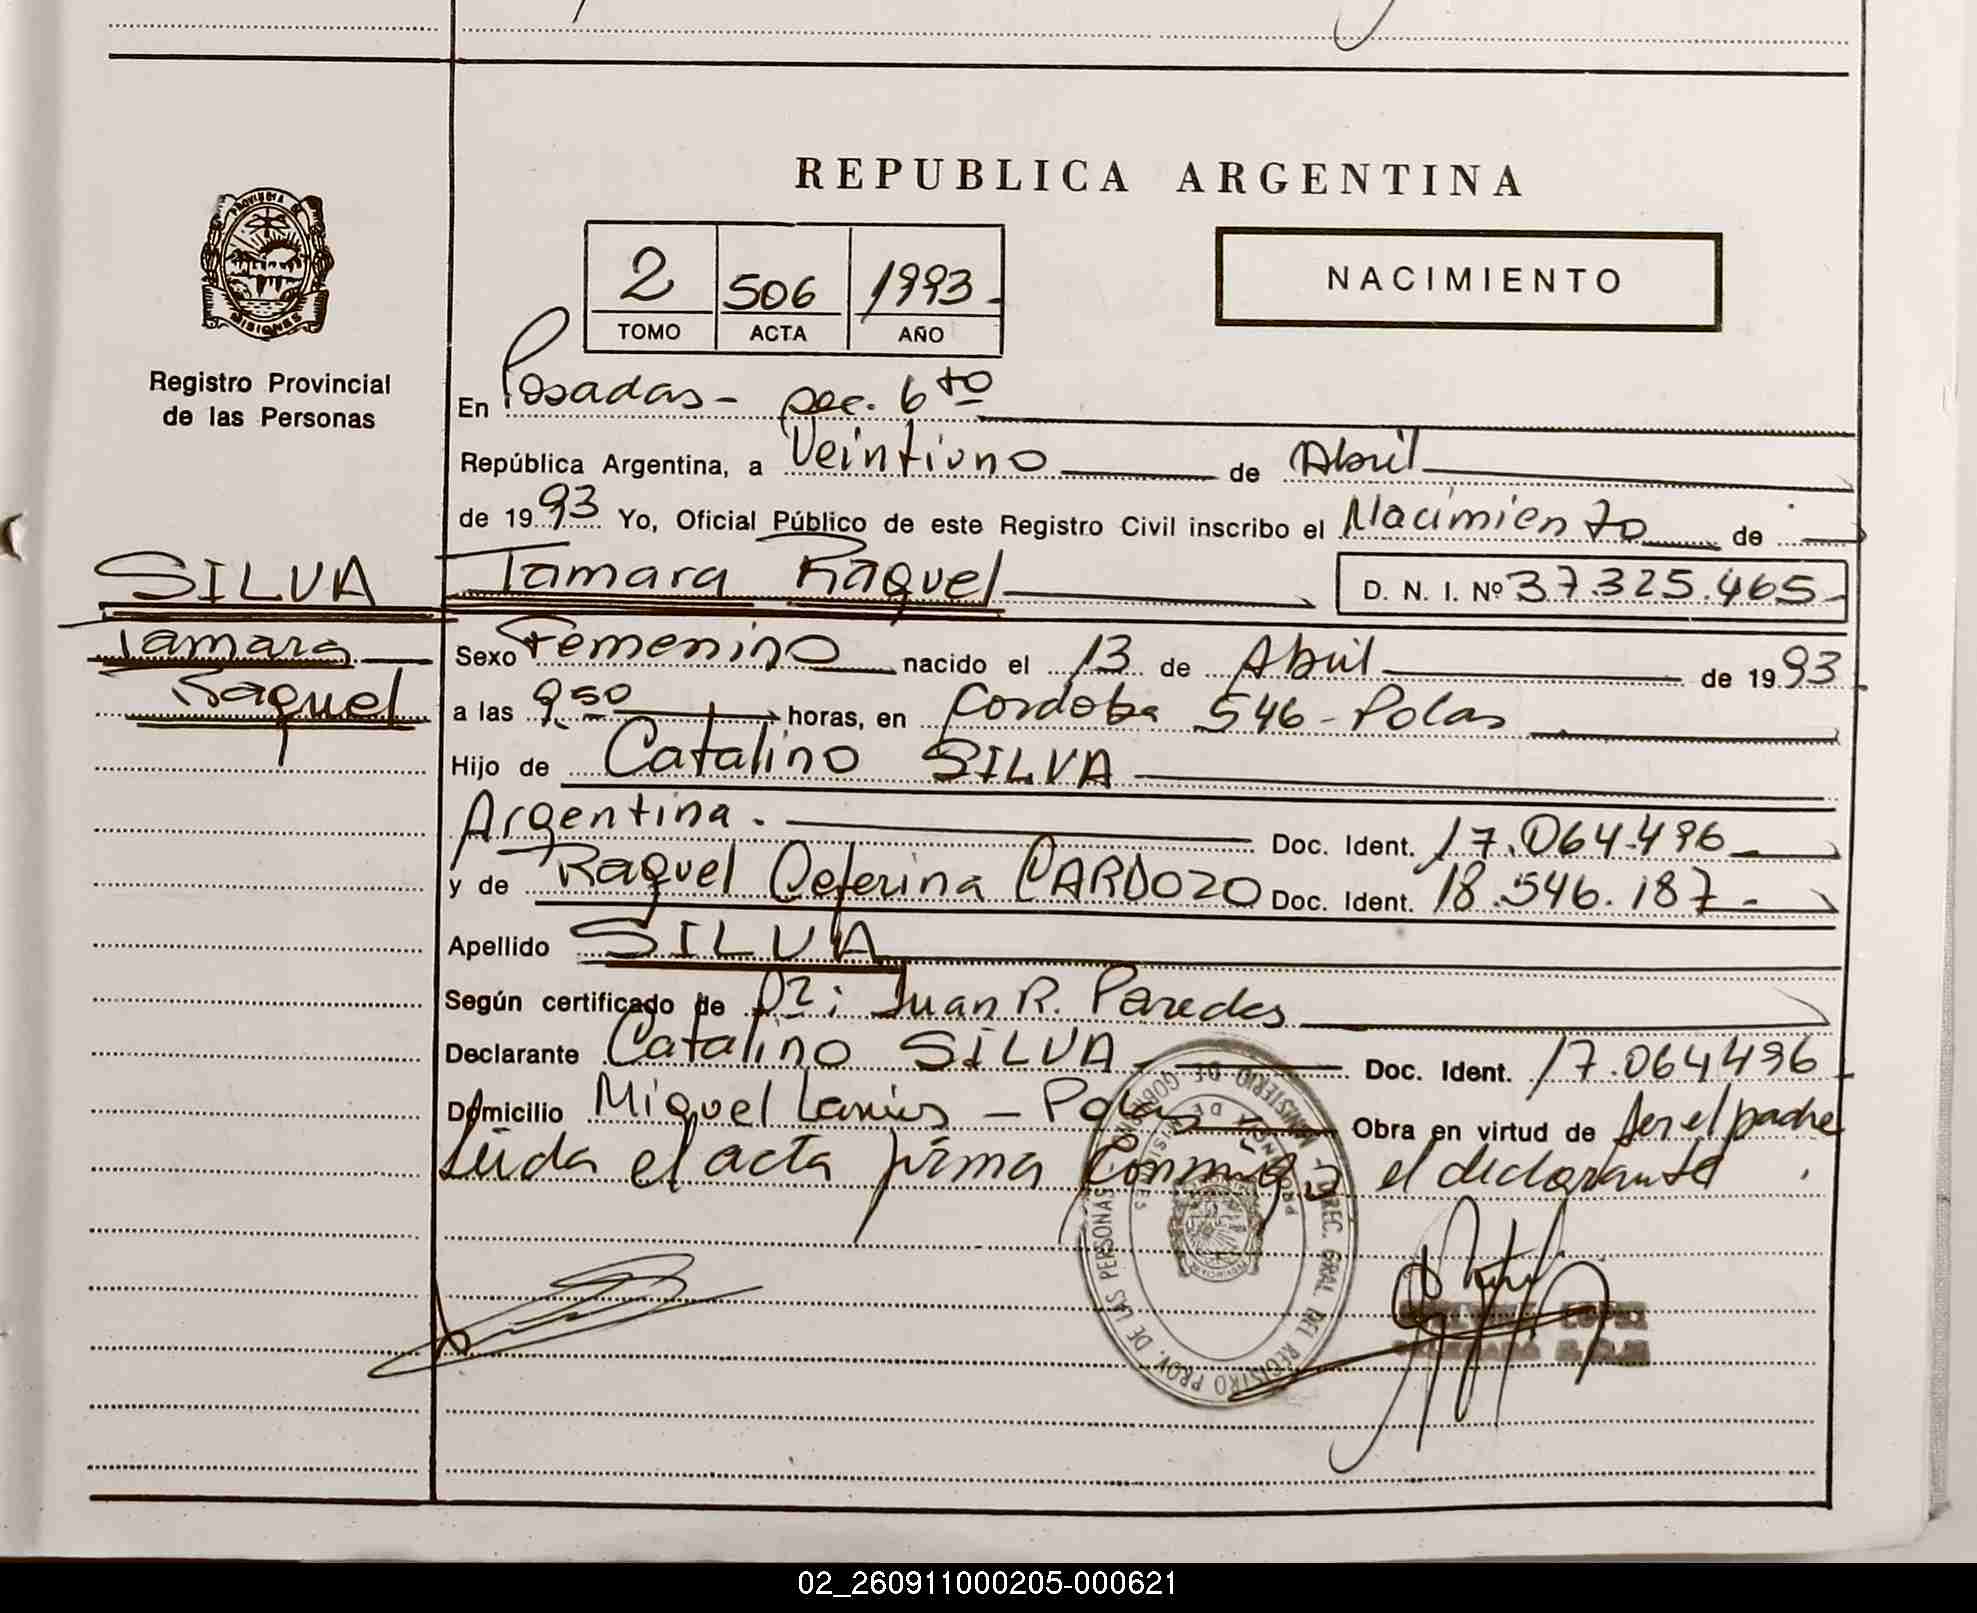 REPUBLICA ARGENTINA
PROVINCIA DE MISIONES
2 506 1993
TOMO ACTA AÑO
NACIMIENTO
Registro Provincial
de las Personas
En Posadas - sec. 6to
República Argentina, a Veintiuno de Abril
de 1993 Yo, Oficial Público de este Registro Civil inscribo el Nacimiento de
SILVA Tamara Raquel D. N. I. Nº 37.325.465
Tamara
Raquel
Sexo Femenino nacido el 13 de Abril de 1993
a las 9,50 horas, en Cordoba 546 - Pdas
Hijo de Catalino SILVA
Argentina. Doc. Ident. 17.064.496
y de Raquel Ceferina CARDOZO Doc. Ident. 18.546.187
Apellido SILVA
Según certificado de Dr: Juan R. Paredes
Declarante Catalino SILVA Doc. Ident. 17.064496
Domicilio Miguel Lanús - Pdas Obra en virtud de ser el padre
Leida el acta firma Conmigo el declarante
MINISTERIO DE GOBIERNO - DIREC. GRAL. DEL REGISTRO PROV. DE LAS PERSONAS
PROVINCIA DE MISIONES
LOPEZ
02_260911000205-000621